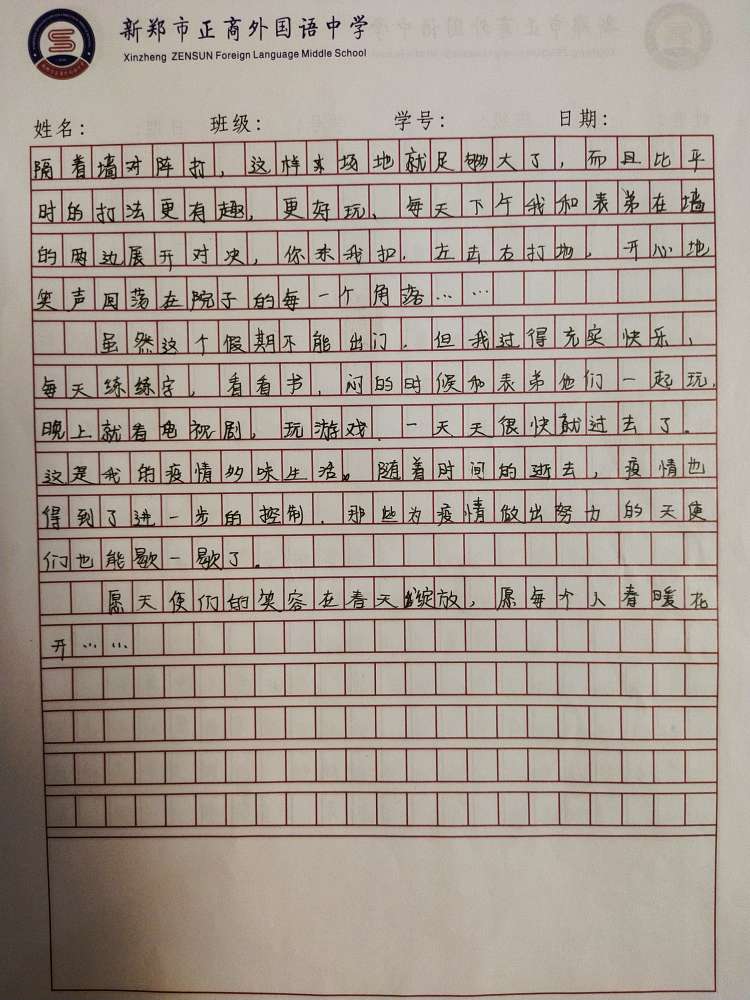 新郑市正商外国语中学
Xinzheng ZENSUN Foreign Language Middle School
姓名： 班级： 学号： 日期：
隔着墙对阵打，这样来场地就足够大了，而且比平
时的打法更有趣，更好玩、每天下午我和表弟在墙
的两边展开对决，你来我扣，左去右打地，开心地
笑声回荡在院子的每一个角落……
虽然这个假期不能出门，但我过得充实快乐，
每天练练字，看看书，闷的时候和表弟他们一起玩，
晚上就看电视剧，玩游戏，一天天很快就过去了。
这是我的疫情妙味生活。随着时间的逝去，疫情也
得到了进一步的控制，那些为疫情做出努力的天使
们也能歇一歇了。
愿天使们的笑容在春天绽放，愿每个人春暖花
开……